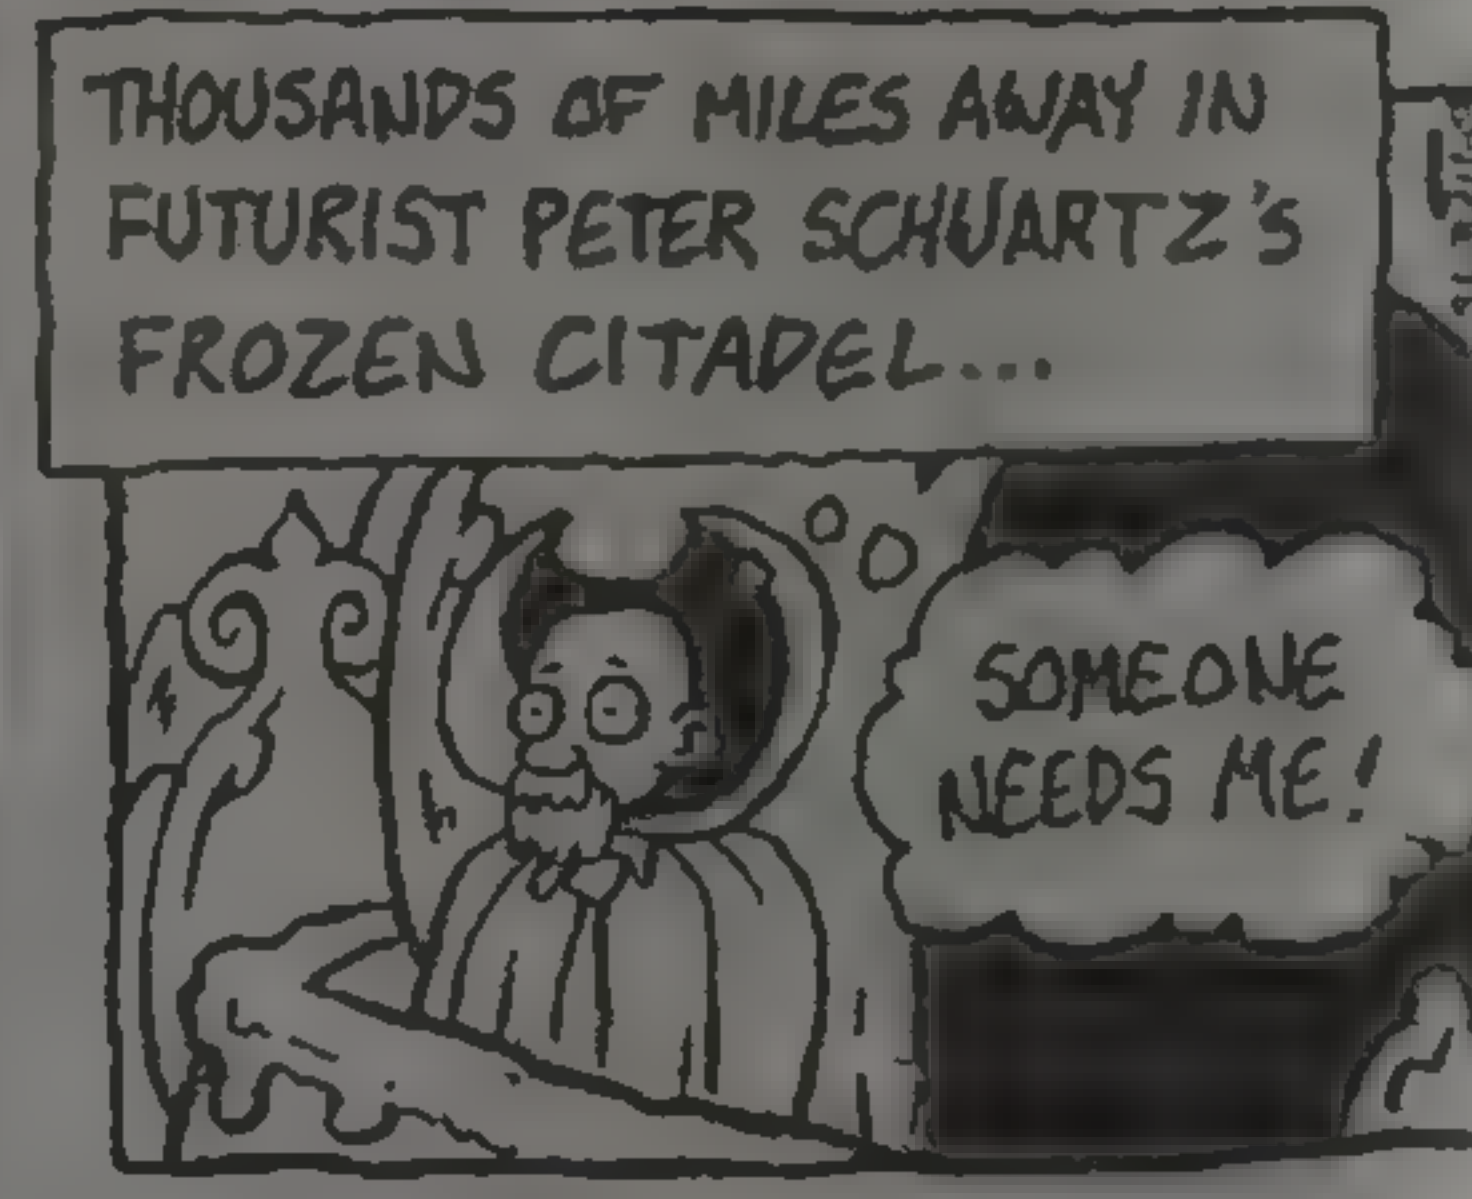 THOUSANDS OF MILES AWAY IN
FUTURIST PETER SCHWARTZ'S
FROZEN CITADEL...
SOMEONE
NEEDS ME!